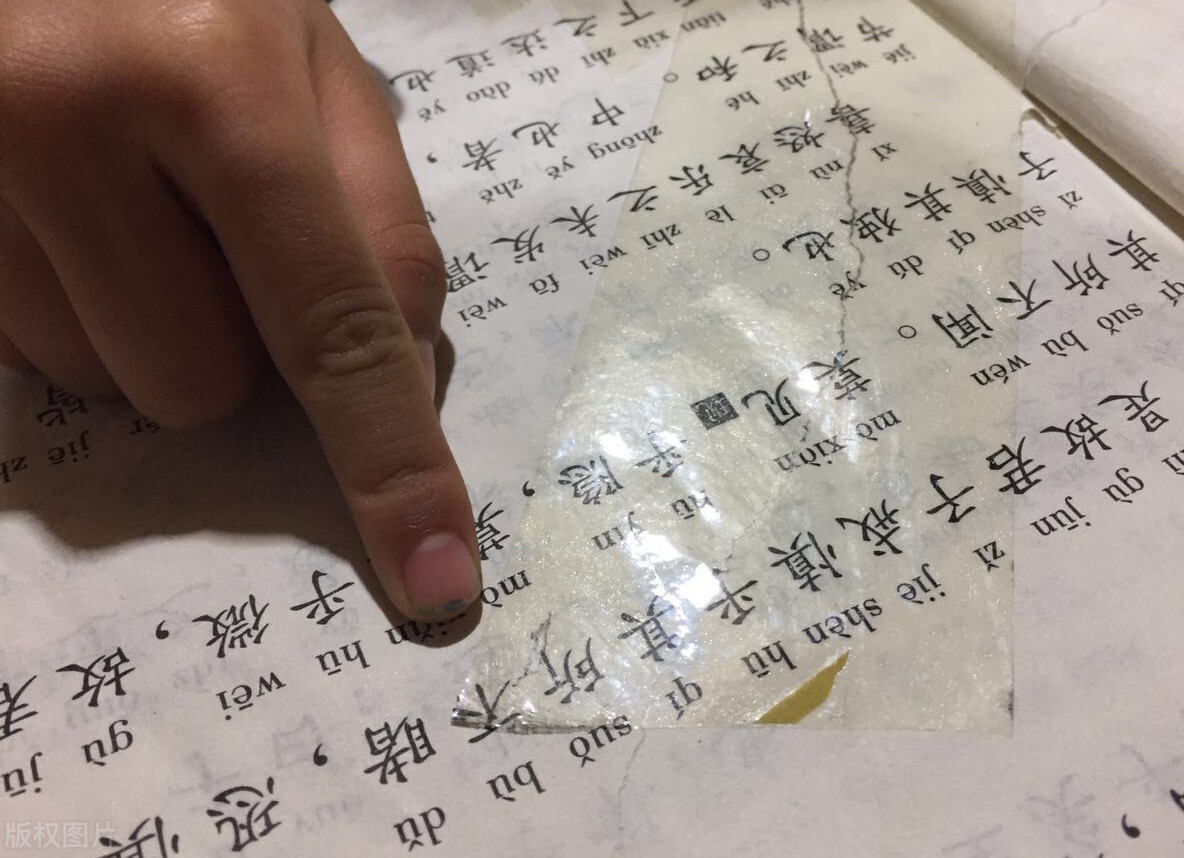 gù jūn zǐ jiè shèn hū qí suǒ bù dǔ
是故君子戒慎乎其所不睹，恐惧
qí suǒ bù wén mò xiàn hū yǐn mò xiàn hū wēi gù jūn
其所不闻。莫见现乎隐，莫乎微，故君
zǐ shèn qí dú yě
子慎其独也。
xǐ nù āi lè zhī wèi fā wèi jiē
喜怒哀乐之未发谓皆
jié wèi zhī hé zhōng yě zhě
节谓之和。中也者，
tiān xià zhī dá dào yě
下之达道也
版权图片